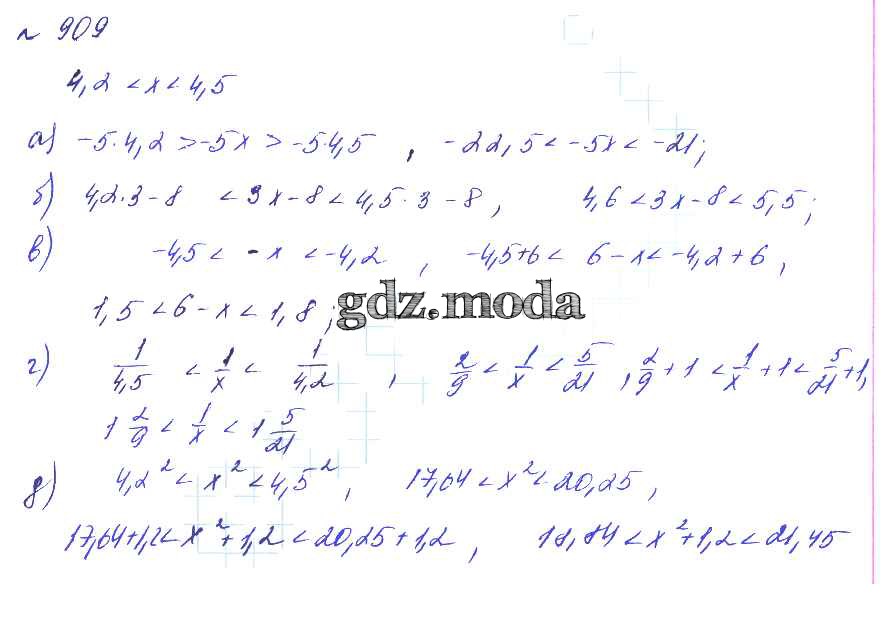 № 909
4,2 < x < 4,5
а) -5·4,2 > -5x > -5·4,5 , -22,5 < -5x < -21;
б) 4,2·3-8 < 3x-8 < 4,5·3-8 , 4,6 < 3x-8 < 5,5;
в) -4,5 < -x < -4,2 , -4,5+6 < 6-x < -4,2+6 ,
1,5 < 6-x < 1,8;
gdz.moda
г) 1/4,5 < 1/x < 1/4,2 , 2/9 < 1/x < 5/21 , 2/9 + 1 < 1/x + 1 < 5/21 + 1,
1 2/9 < 1/x < 1 5/21
д) 4,2² < x² < 4,5² , 17,64 < x² < 20,25 ,
17,64+1,2 < x²+1,2 < 20,25+1,2 , 18,84 < x²+1,2 < 21,45